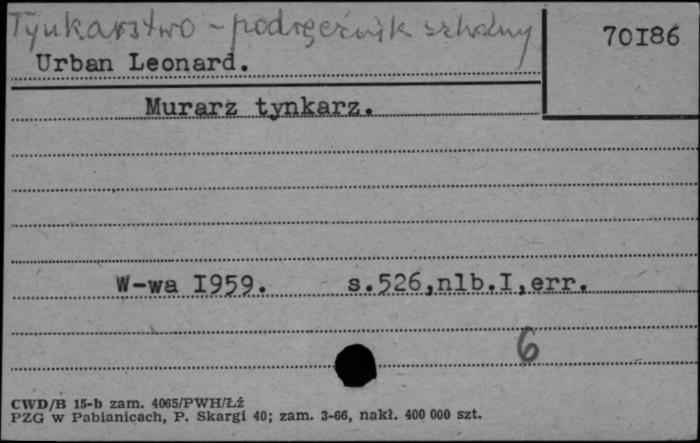 Tynkarstwo - podręcznik szkolny
70I86
Urban Leonard.
Murarz tynkarz.
W-wa I959. s.526,nlb.I,err.
6
CWD/B 15-b zam. 4065/PWH/Łź
PZG w Pabianicach, P. Skargi 40; zam. 3-66, nakł. 400 000 szt.